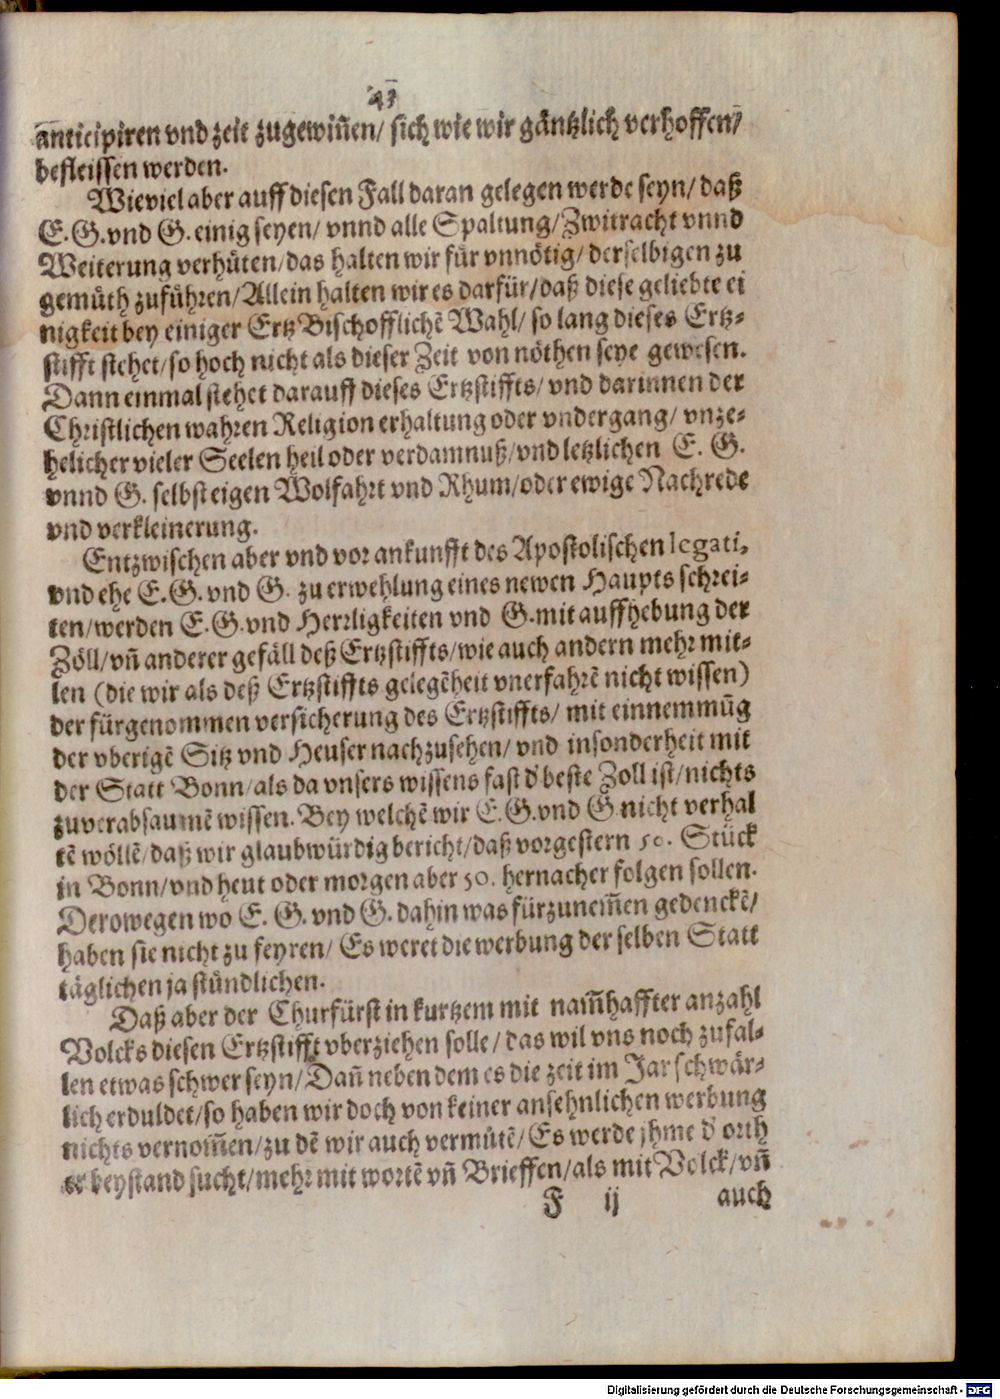 43
anticipiren vnd zeit zugewiñen/ sich wie wir gäntzlich verhoffen/
befleissen werden.
Wieviel aber auff diesen Fall daran gelegen werde seyn/ daß
E. G. vnd G. einig seyen/ vnnd alle Spaltung/ Zwitracht vnnd
Weiterung verhüten/ das halten wir für vnnötig/ derselbigen zu
gemüth zuführen/ Allein halten wir es darfür/ daß diese geliebte ei
nigkeit bey einiger Ertz Bischofflichẽ Wahl/ so lang dieses Ertz-
stifft stehet/ so hoch nicht als dieser Zeit von nöthen seye gewesen.
Dann einmal stehet darauff dieses Ertzstiffts/ vnd darinnen der
Christlichen wahren Religion erhaltung oder vndergang/ vnze-
helicher vieler Seelen heil oder verdamnuß/ vnd letzlichen E. G.
vnnd G. selbst eigen Wolfahrt vnd Rhum/ oder ewige Nachrede
vnd verkleinerung.
Entzwischen aber vnd vor ankunfft des Apostolischen legati,
vnd ehe E. G. vnd G. zu erwehlung eines newen Haupts schrei-
ten/ werden E. G. vnd Herrligkeiten vnd G. mit auffhebung der
Zöll/ vñ anderer gefäll deß Ertzstiffts/ wie auch andern mehr mit-
len (die wir als deß Ertzstiffts gelegẽheit vnerfahrẽ nicht wissen)
der fürgenommen versicherung des Ertzstiffts/ mit einnemmũg
der vberigẽ Sitz vnd Heuser nachzusehen/ vnd insonderheit mit
der Statt Bonn/ als da vnsers wissens fast d' beste Zoll ist/ nichts
zuverabsaumẽ wissen. Bey welchẽ wir E. G. vnd G nicht verhal
tẽ wöllẽ/ daß wir glaubwürdig bericht/ daß vorgestern 50. Stück
in Bonn/ vnd heut oder morgen aber 50. hernacher folgen sollen.
Derowegen wo E. G. vnd G. dahin was fürzunem̃en gedenckẽ/
haben sie nicht zu feyren/ Es weret die werbung der selben Statt
täglichen ja stündlichen.
Daß aber der Churfürst in kurtzem mit nam̃haffter anzahl
Volcks diesen Ertzstifft vberziehen solle/ das wil vns noch zufal-
len etwas schwer seyn/ Dañ neben dem es die zeit im Jar schwär-
lich erduldet/ so haben wir doch von keiner ansehnlichen werbung
nichts vernom̃en/ zu dẽ wir auch vermütẽ/ Es werde jhme d' orth
er beystand sucht/ mehr mit wortẽ vñ Brieffen/ als mit Volck/ vñ
F ij auch
Digitalisierung gefördert durch die Deutsche Forschungsgemeinschaft - DFG